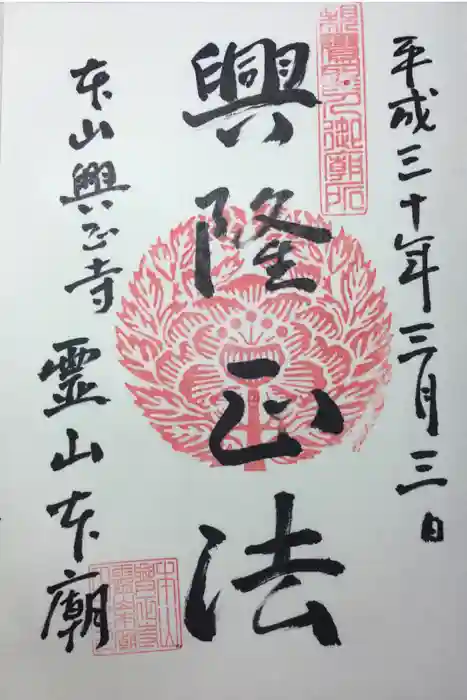 平成三十年三月三日
親鸞聖人御廟所
興隆正法
本山興正寺
霊山本廟